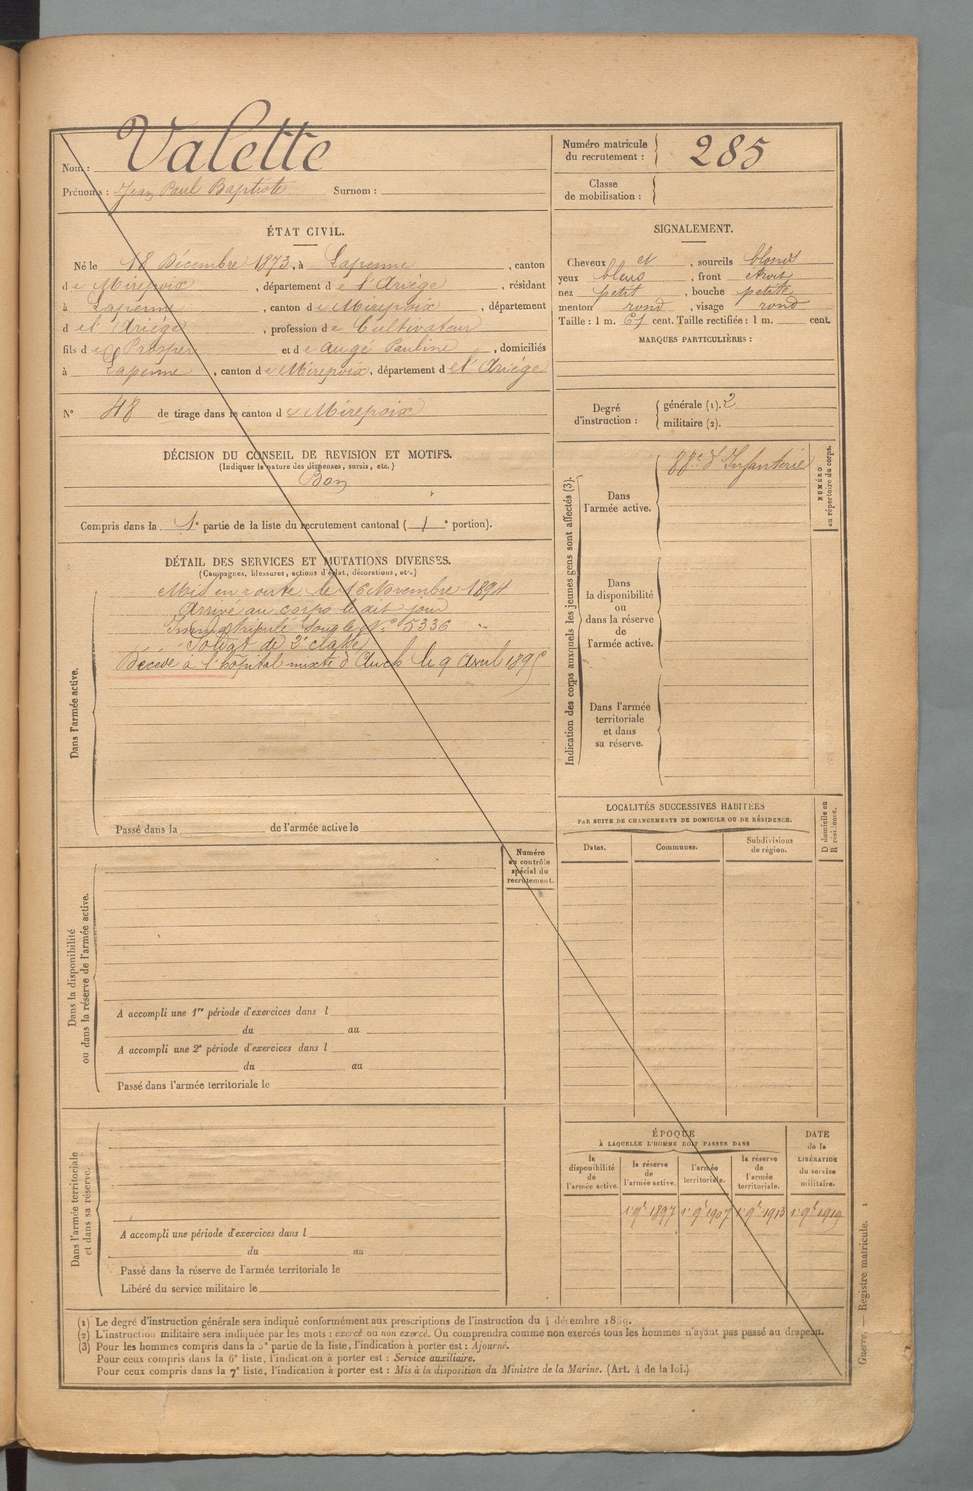 Nom : Valette
Prénoms : Jean Paul Baptiste Surnom :
ÉTAT CIVIL.
Né le 18 Décembre 1873, à Lapenne, canton
de Mirepoix, département de l'Ariège, résidant
à Lapenne, canton de Mirepoix, département
de l'Ariège, profession de Cultivateur
fils de Prosper et de Augé Pauline, domiciliés
à Lapenne, canton de Mirepoix, département de l'Ariège
N° 48 de tirage dans le canton de Mirepoix
DÉCISION DU CONSEIL DE REVISION ET MOTIFS.
(Indiquer la nature des dispenses, sursis, etc.)
Bon
Compris dans la 1e partie de la liste du recrutement cantonal (1e portion).
DÉTAIL DES SERVICES ET MUTATIONS DIVERSES.
(Campagnes, blessures, actions d'éclat, décorations, etc.)
Dans l'armée active.
Mis en route le 16 Novembre 1894
Arrivé au corps le dit jour
Immatriculé sous le N° 5336
Soldat de 2e classe
Décédé à l'hôpital mixte d'Auch le 9 avril 1895
Passé dans la de l'armée active le
Numéro
au contrôle
spécial du
recrutement.
Dans la disponibilité
ou dans la réserve de l'armée active.
A accompli une 1re période d'exercices dans l
du au
A accompli une 2e période d'exercices dans l
du au
Passé dans l'armée territoriale le
Dans l'armée territoriale
et dans sa réserve.
A accompli une période d'exercices dans l
du au
Passé dans la réserve de l'armée territoriale le
Libéré du service militaire le
Numéro matricule
du recrutement : 285
Classe
de mobilisation :
SIGNALEMENT.
Cheveux et, sourcils blonds
yeux bleus, front étroit
nez petit, bouche petite
menton rond, visage rond
Taille : 1 m. 67 cent. Taille rectifiée : 1 m. cent.
MARQUES PARTICULIÈRES :
Degré
d'instruction :
générale (1). 2
militaire (2).
Indication des corps auxquels les jeunes gens sont affectés (3).
Dans
l'armée active.
88e d'Infanterie
NUMÉRO
au répertoire du corps.
Dans
la disponibilité
ou
dans la réserve
de
l'armée active.
Dans l'armée
territoriale
et dans
sa réserve.
LOCALITÉS SUCCESSIVES HABITÉES
PAR SUITE DE CHANGEMENTS DE DOMICILE OU DE RÉSIDENCE.
Dates. Communes. Subdivisions
de région.
D domicile ou
R résidence.
ÉPOQUE
À LAQUELLE L'HOMME DOIT PASSER DANS
la
disponibilité
de
l'armée active.
la réserve
de
l'armée active.
l'armée
territoriale.
la réserve
de
l'armée
territoriale.
DATE
de la
LIBÉRATION
du service
militaire.
1er 9bre 1897 1er 9bre 1907 1er 9bre 1913 1er 9bre 1919
(1) Le degré d'instruction générale sera indiqué conformément aux prescriptions de l'instruction du 4 décembre 1889.
(2) L'instruction militaire sera indiquée par les mots : exercé ou non exercé. On comprendra comme non exercés tous les hommes n'ayant pas passé au drapeau.
(3) Pour les hommes compris dans la 5e partie de la liste, l'indication à porter est : Ajourné.
Pour ceux compris dans la 6e liste, l'indication à porter est : Service auxiliaire.
Pour ceux compris dans la 7e liste, l'indication à porter est : Mis à la disposition du Ministre de la Marine. (Art. 4 de la loi.)
Guerre. — Registre matricule. 1